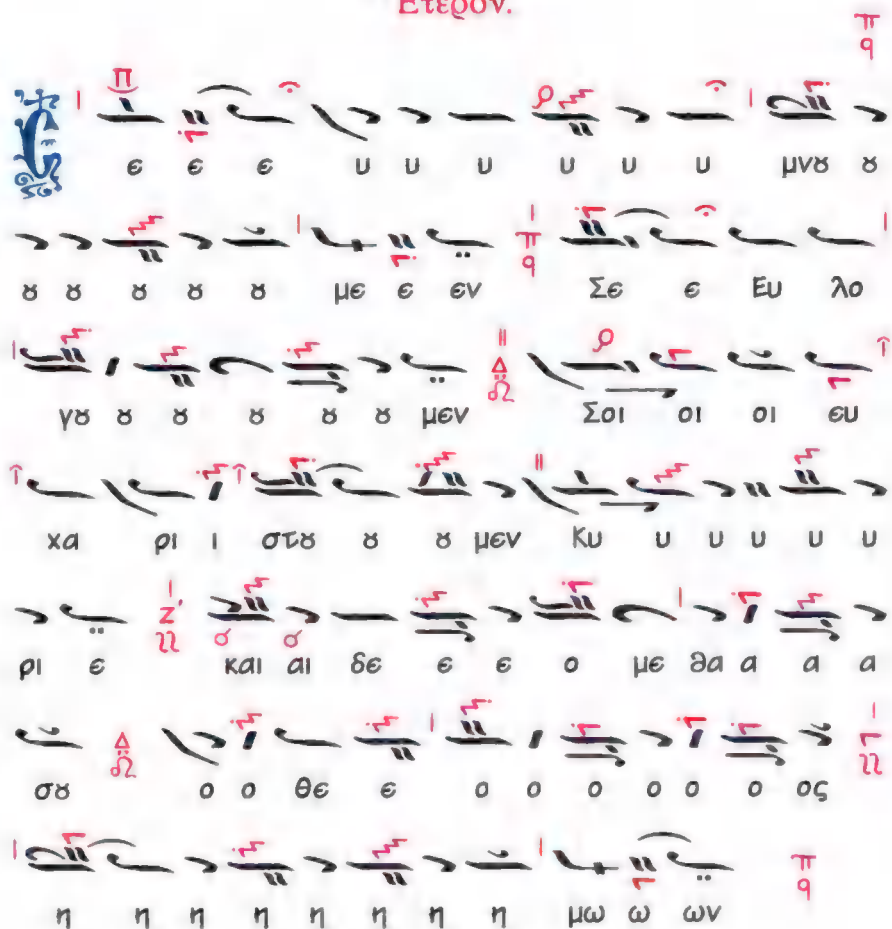 Ἕτερον.
Σ ε ε ε υ υ υ υ υ υ μνȣ ȣ
ȣ ȣ ȣ ȣ ȣ με ε εν Σε ε Ευ λο
γȣ ȣ ȣ ȣ ȣ ȣ μεν Σοι οι οι ευ
χα ρι ι στȣ ȣ ȣ μεν Κυ υ υ υ υ υ
ρι ε και αι δε ε ε ο με θα α α α
σȣ ο ο θε ε ο ο ο ο ο ο ος
η η η η η η η η μω ω ων